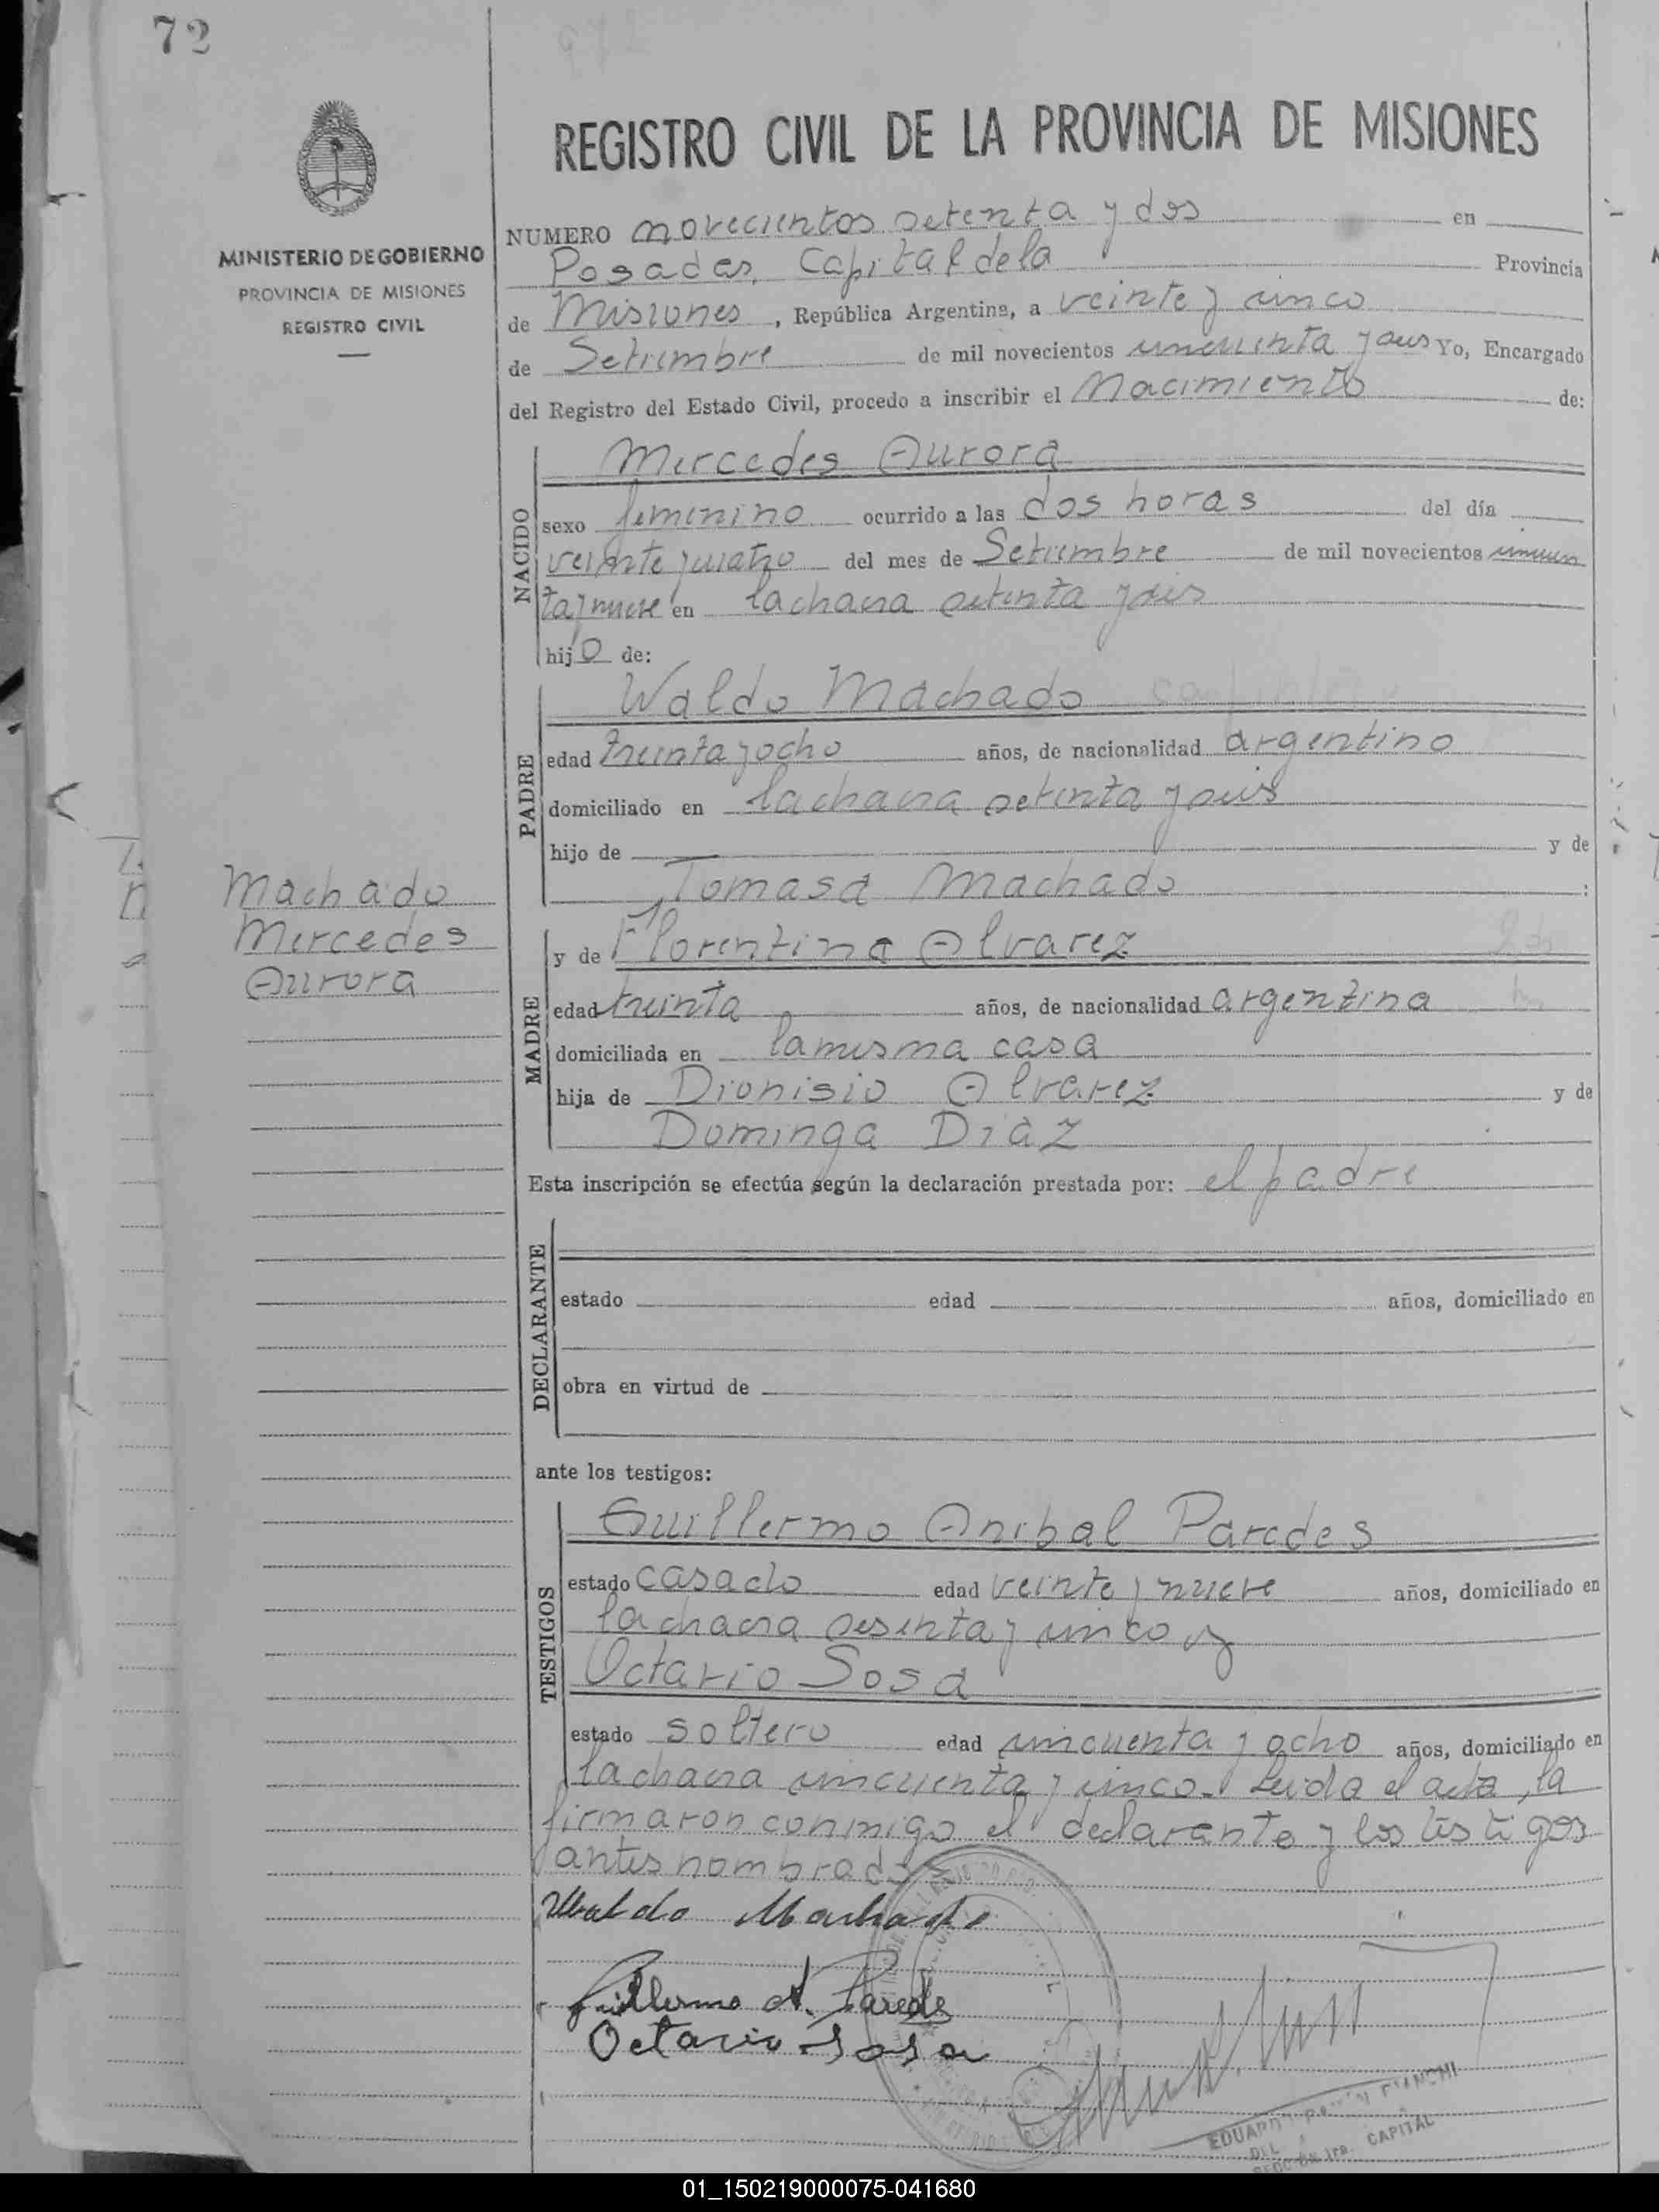 72
972
REGISTRO CIVIL DE LA PROVINCIA DE MISIONES
MINISTERIO DE GOBIERNO
PROVINCIA DE MISIONES
REGISTRO CIVIL
NUMERO novecientos setenta y dos en
Posadas, Capital de la Provincia
de Misiones, República Argentina, a veinte y cinco
de Setiembre de mil novecientos cincuenta y Yo, Encargado
del Registro del Estado Civil, procedo a inscribir el Nacimiento de:
NACIDO
Mercedes Aurora
sexo femenino ocurrido a las dos horas del día
veinte y cuatro del mes de Setiembre de mil novecientos cincuen
ta y nueve en la chacra setenta y seis
hijo de:
PADRE
Waldo Machado
edad treinta y ocho años, de nacionalidad argentino
domiciliado en la chacra setenta y seis
hijo de y de
Tomasa Machado :
Machado
Mercedes
Aurora
MADRE
y de Florentina Alvarez
edad treinta años, de nacionalidad argentina
domiciliada en la misma casa
hija de Dionisio Alvarez y de
Dominga Diaz
Esta inscripción se efectúa según la declaración prestada por: el padre
DECLARANTE
estado edad años, domiciliado en
obra en virtud de
ante los testigos:
TESTIGOS
Guillermo Anibal Paredes
estado casado edad veinte y nueve años, domiciliado en
la chacra sesenta y cinco y
Octavio Sosa
estado soltero edad cincuenta y ocho años, domiciliado en
la chacra cincuenta y cinco. Leida el acta, la
firmaron conmigo el declarante y los testigos
antes nombrados
Waldo Machado
Guillermo A. Paredes
Octavio Sosa
EDUARDO
DEL
SECCION 1ra. CAPITAL
01_150219000075-041680